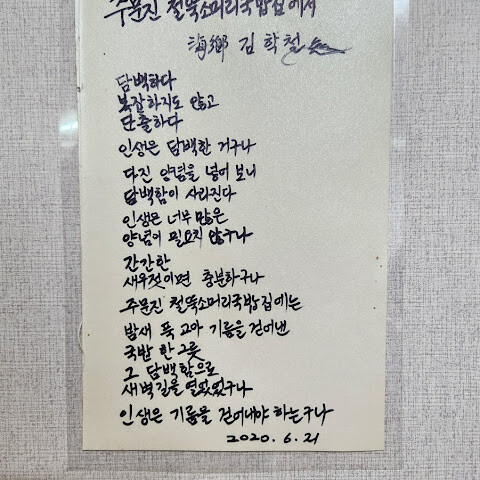 주문진 철뚝소머리국밥집에서
海鄕 김학철
담백하다
복잡하지도 않고
단출하다
인생은 담백한 거구나
다진 양념을 넣어 보니
담백함이 사라진다
인생은 너무 많은
양념이 필요치 않구나
간간한
새우젓이면 충분하구나
주문진 철뚝소머리국밥집에는
밤새 푹 고아 기름을 걷어낸
국밥 한 그릇
그 담백함으로
새벽길을 열었었구나
인생은 기름을 걷어내야 하는구나
2020. 6. 21